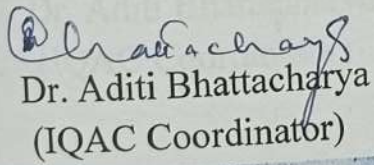 Dr. Aditi Bhattacharya
(IQAC Coordinator)